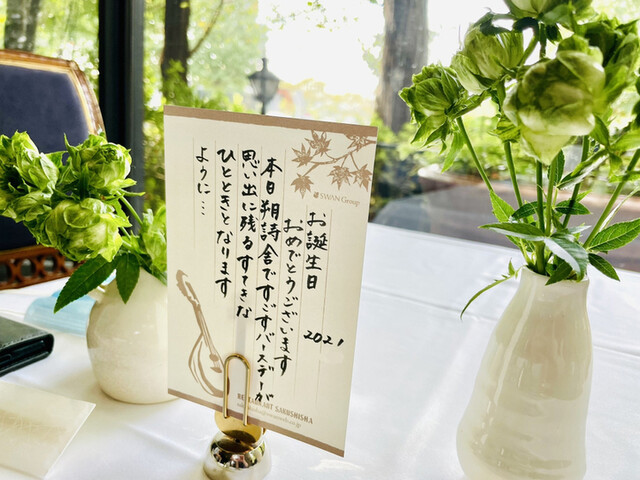 SWAN Group
お誕生日
おめでとうございます
2021
本日朔詩舎ですごすバースデーが
思い出に残るすてきな
ひとときとなります
ように…
RESTAURANT SAKUSHISHA